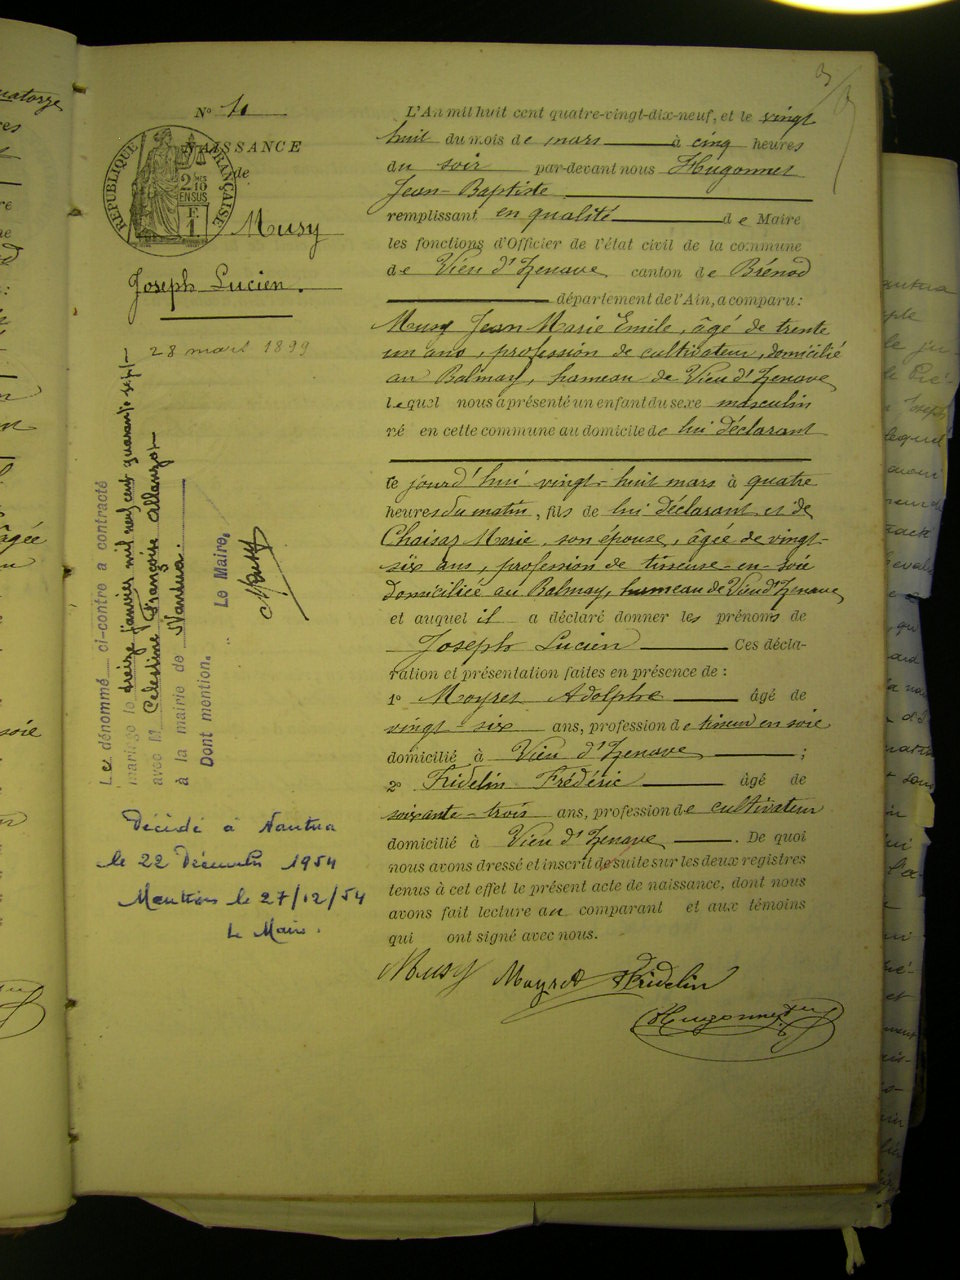 N° 10
NAISSANCE
de
RÉPUBLIQUE FRANÇAISE
2/10
EN SUS
Musy
Joseph Lucien.
28 mars 1899
Le dénommé ci-contre a contracté
mariage le treize janvier mil neuf cent quarante sept
avec M Celestine Françoise
à la mairie de Nantua.
Dont mention. Le Maire,
Décédé à Nantua
le 22 Décembre 1954
Mention le 27/12/54
Le Maire.
L'An mil huit cent quatre-vingt-dix-neuf, et le vingt
huit du mois de mars à cinq heures
du soir par-devant nous Hugonnet
Jean-Baptiste
remplissant en qualité de Maire
les fonctions d'Officier de l'état civil de la commune
de Vieu d'Izenave canton de Brénod
département de l'Ain, a comparu:
Musy Jean Marie Emile, âgé de trente
un ans, profession de cultivateur, domicilié
au Balmay, hameau de Vieu d'Izenave
lequel nous a présenté un enfant du sexe masculin
né en cette commune au domicile de lui déclarant
ce jourd'hui vingt-huit mars à quatre
heures du matin, fils de lui déclarant et de
Chaisaz Marie, son épouse, âgée de vingt-
six ans, profession de tisseuse-en-soie
domiciliée au Balmay, hameau de Vieu d'Izenave
et auquel il a déclaré donner les prénoms de
Joseph Lucien Ces décla-
ration et présentation faites en présence de :
1° Moyret Adolphe âgé de
vingt six ans, profession de tisseur en soie
domicilié à Vieu d'Izenave ;
2° Fridelin Frédéric âgé de
soixante-trois ans, profession de cultivateur
domicilié à Vieu d'Izenave. De quoi
nous avons dressé et inscrit de suite sur les deux registres
tenus à cet effet le présent acte de naissance, dont nous
avons fait lecture au comparant et aux témoins
qui ont signé avec nous.
Musy Moyret Fridelin
Hugonnet